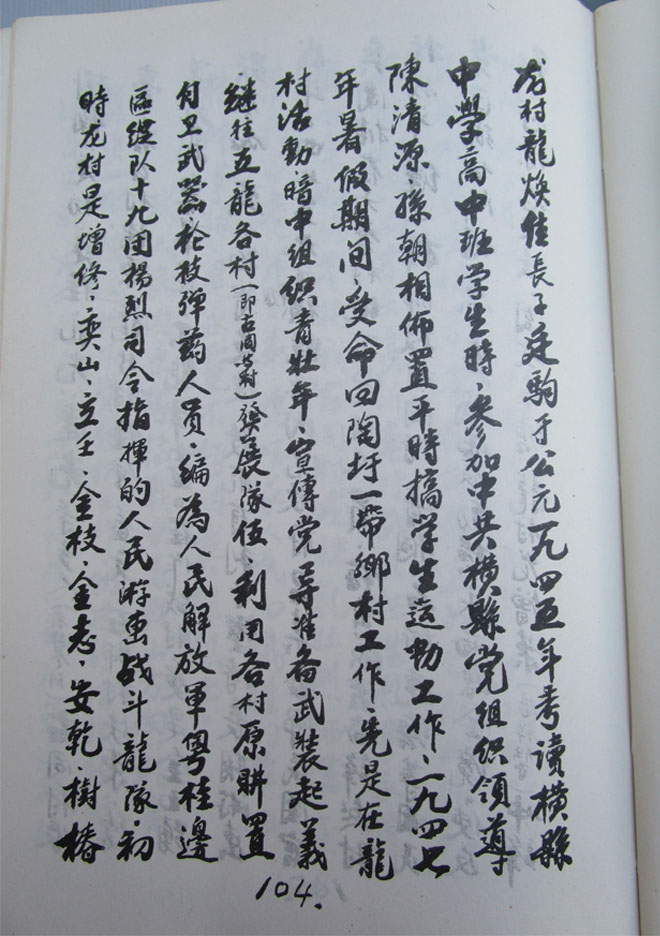 龙村龍煥佳長子廷駒于公元一九四五年考讀橫縣
中學高中班学生時、参加中共橫縣党组织領導
陳清源、孫朝相佈置平時搞学生运动工作、一九四七
年暑假期间、受命回陶圩一帶鄉村工作、先是在龍
村活動、暗中组织青壮年、宣傳党主导准备武裝起義
继往五龍各村（即古间等村）發展隊伍、利用各村原購置
自卫武器、枪枝弹药人员、编為人民解放軍粤桂邊
區纵队十九团楊烈司令指揮的人民游击战斗龍隊、初
時龙村是增修、奕山、立壬、金枝、金志、安乾、樹椿
104.